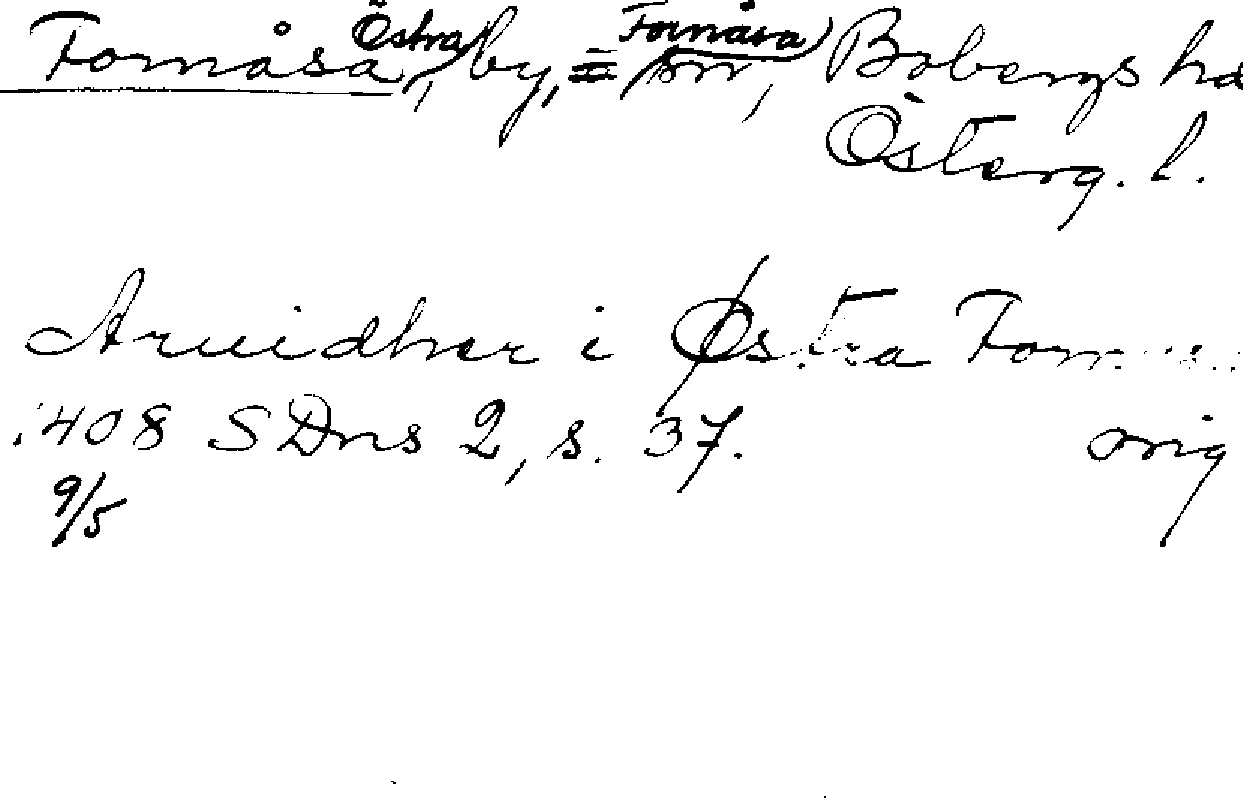 Fornåsa, Östra, by, Fornåsa sn, Bobergs hd
Österg. l.
Arvidher i Østra
1408 SDns 2, s. 37. orig
9/5